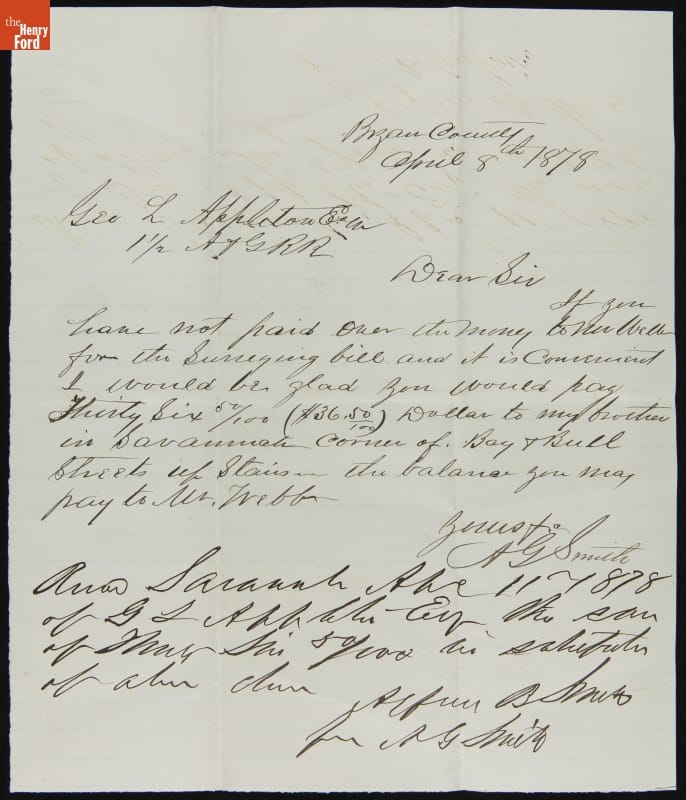 the
Henry
Ford
Bryan County
April 8th 1878
Geo L Appleton Esqr
1 1/2 A & G R R
Dear Sir
If you
have not paid over the money to Mr Webb
for the Surveying bill and it is Convenient
I would be glad you would pay
Thirty Six 50/100 ($36.50/100) Dollar to my brother
in Savannah Corner of Bay & Bull
Streets up Stairs the balance you may
pay to Mr. Webb
Yours &c
A G Smith
Savannah Apl 11 1878
of G L Appleton Esq the sum
of Thirty Six 50/100 in
of above
B Smith
for A G Smith